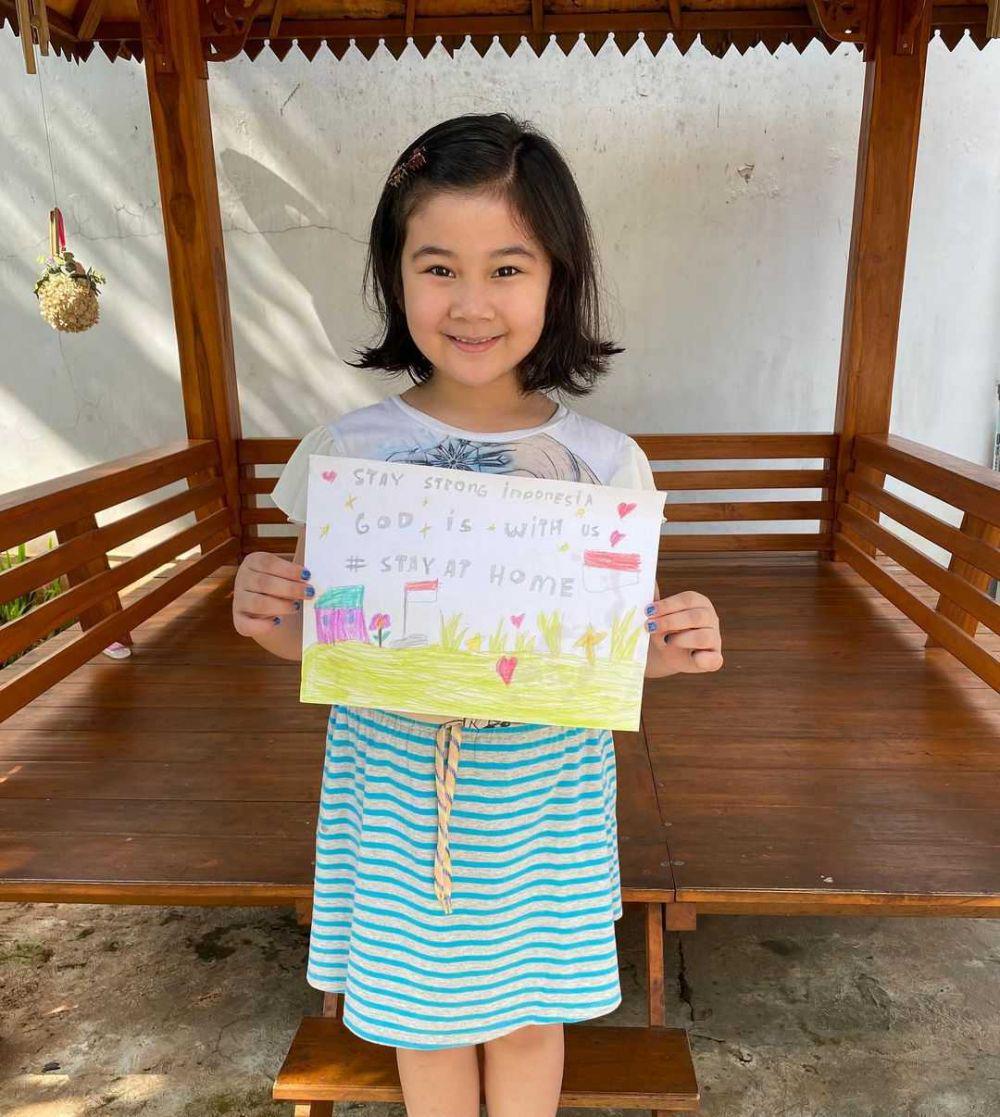 STAY STRONG INDONESIA
GOD iS WiTH US
# STAY AT HOME